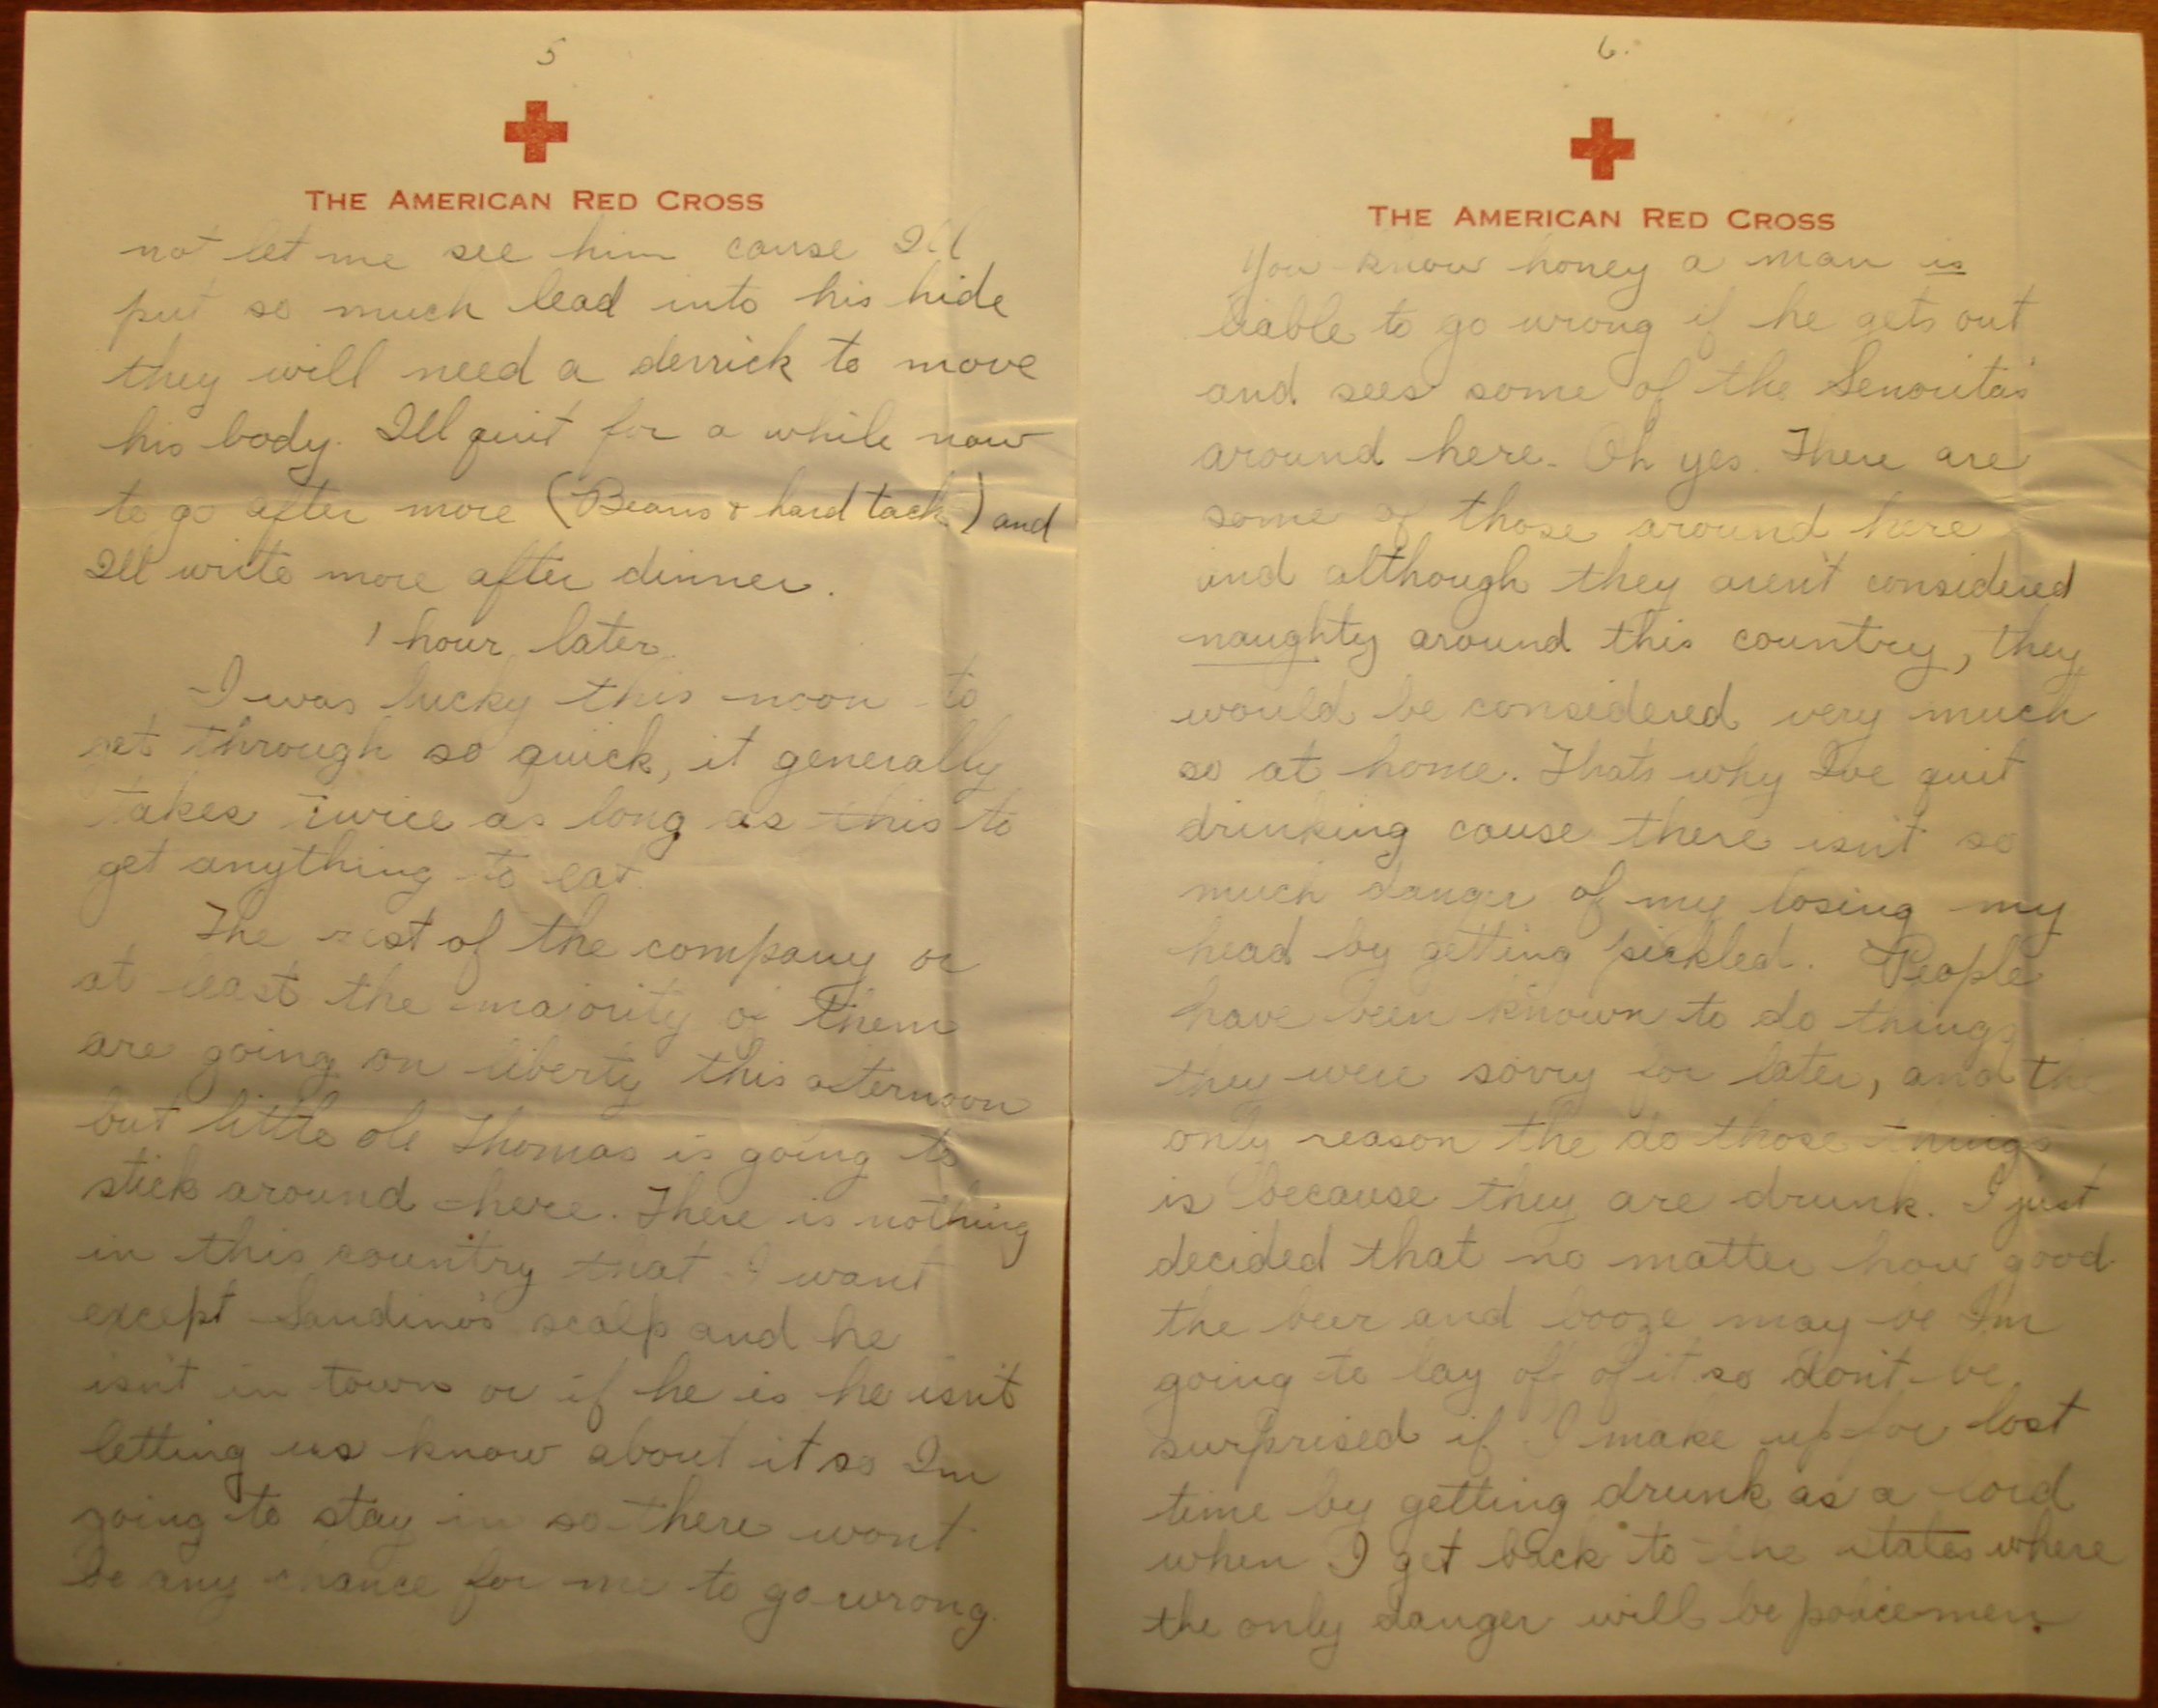 5
THE AMERICAN RED CROSS
not let me see him cause Ill
put so much lead into his hide
they will need a derrick to move
his body. Ill quit for a while now
to go after more (Beans & hard tack) and
Ill write more after dinner.
1 hour later
I was lucky this noon to
get through so quick, it generally
takes twice as long as this to
get anything to eat.
The rest of the company or
at least the majority of them
are going on liberty this afternoon
but little ole Thomas is going to
stick around here. There is nothing
in this country that I want
except Sandino's scalp and he
isn't in town or if he is he isn't
letting us know about it so Im
going to stay in so there wont
be any chance for me to go wrong.
6.
THE AMERICAN RED CROSS
You know honey a man is
liable to go wrong if he gets out
and sees some of the Senorita's
around here. Oh yes. There are
some of those around here
and although they aren't considered
naughty around this country, they
would be considered very much
so at home. Thats why I've quit
drinking cause there isn't so
much danger of my losing my
head by getting pickled. People
have been known to do things
they were sorry for later, and the
only reason the do those things
is because they are drunk. I just
decided that no matter how good
the beer and booze may be I'm
going to lay off of it so don't be
surprised if I make up for lost
time by getting drunk as a lord
when I get back to the states where
the only danger will be policemen.